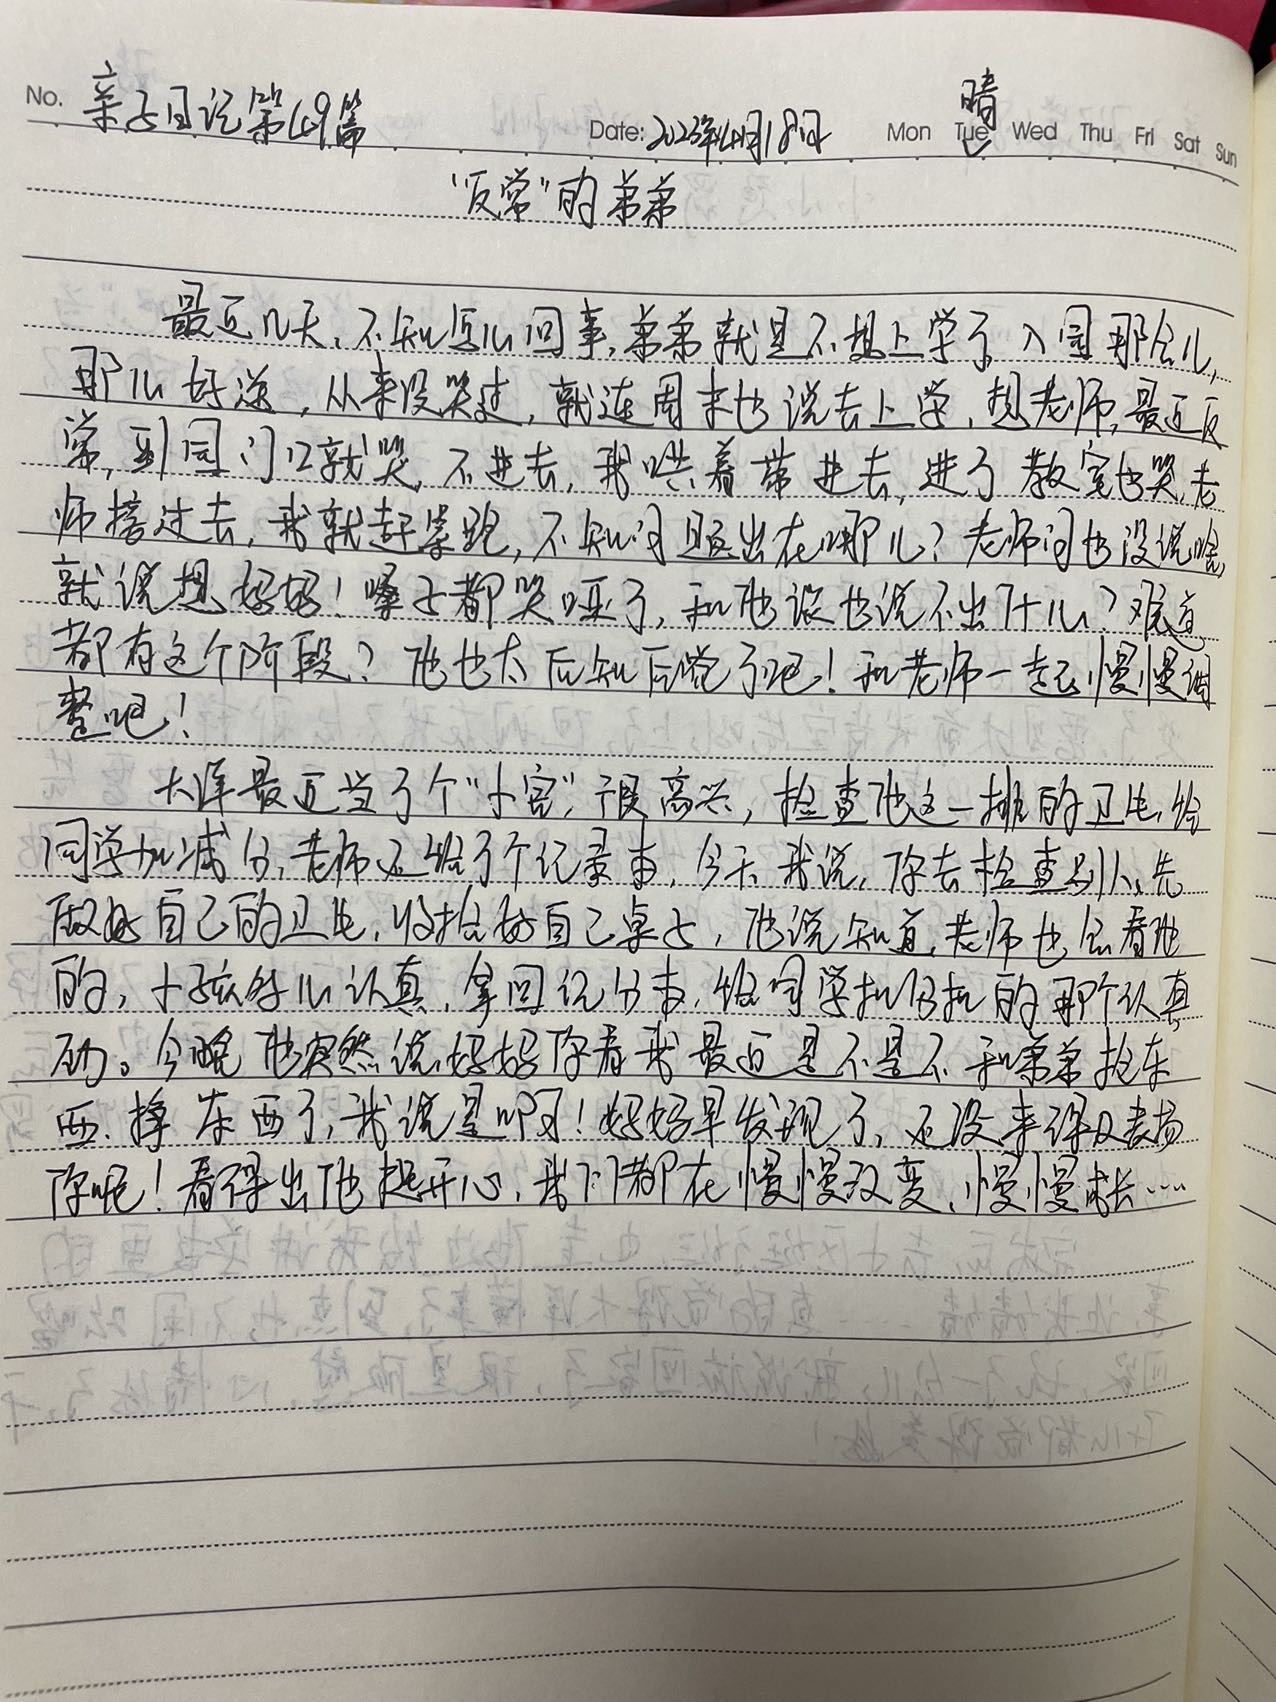 No. 亲子日记第49篇
Date: 2023年4月18日 Mon Tue Wed Thu Fri Sat Sun
晴
"反常"的弟弟
最近几天，不知怎么回事，弟弟就是不想上学了，入园那会儿，
那么好送，从来没哭过，就连周末也说去上学，想老师，最近反
常，到园门口就哭，不进去，我哄着带进去，进了教室也哭，老
师接过去，我就赶紧跑，不知问题出在哪儿？老师问也没说啥，
就说想妈妈！嗓子都哭哑了，和他谈也说不出什么？难道
都有这个阶段？他也太后知后觉了吧！和老师一起慢慢调
整吧！
大洋最近当了个"小官"，很高兴，检查他这一排的卫生，给
同学加减分，老师还给了个记录本，今天我说，你去检查别人，先
做好自己的卫生，收拾好自己桌子，他说知道，老师也会看他
的，小孩多么认真，拿回记分本，给同学扣分扣的那个认真
劲。今晚他突然说妈妈你看我最近是不是不和弟弟抢东
西、挣东西了，我说是啊！妈妈早发现了，还没来得及表扬
你呢！看得出他挺开心，我们都在慢慢改变，慢慢成长……